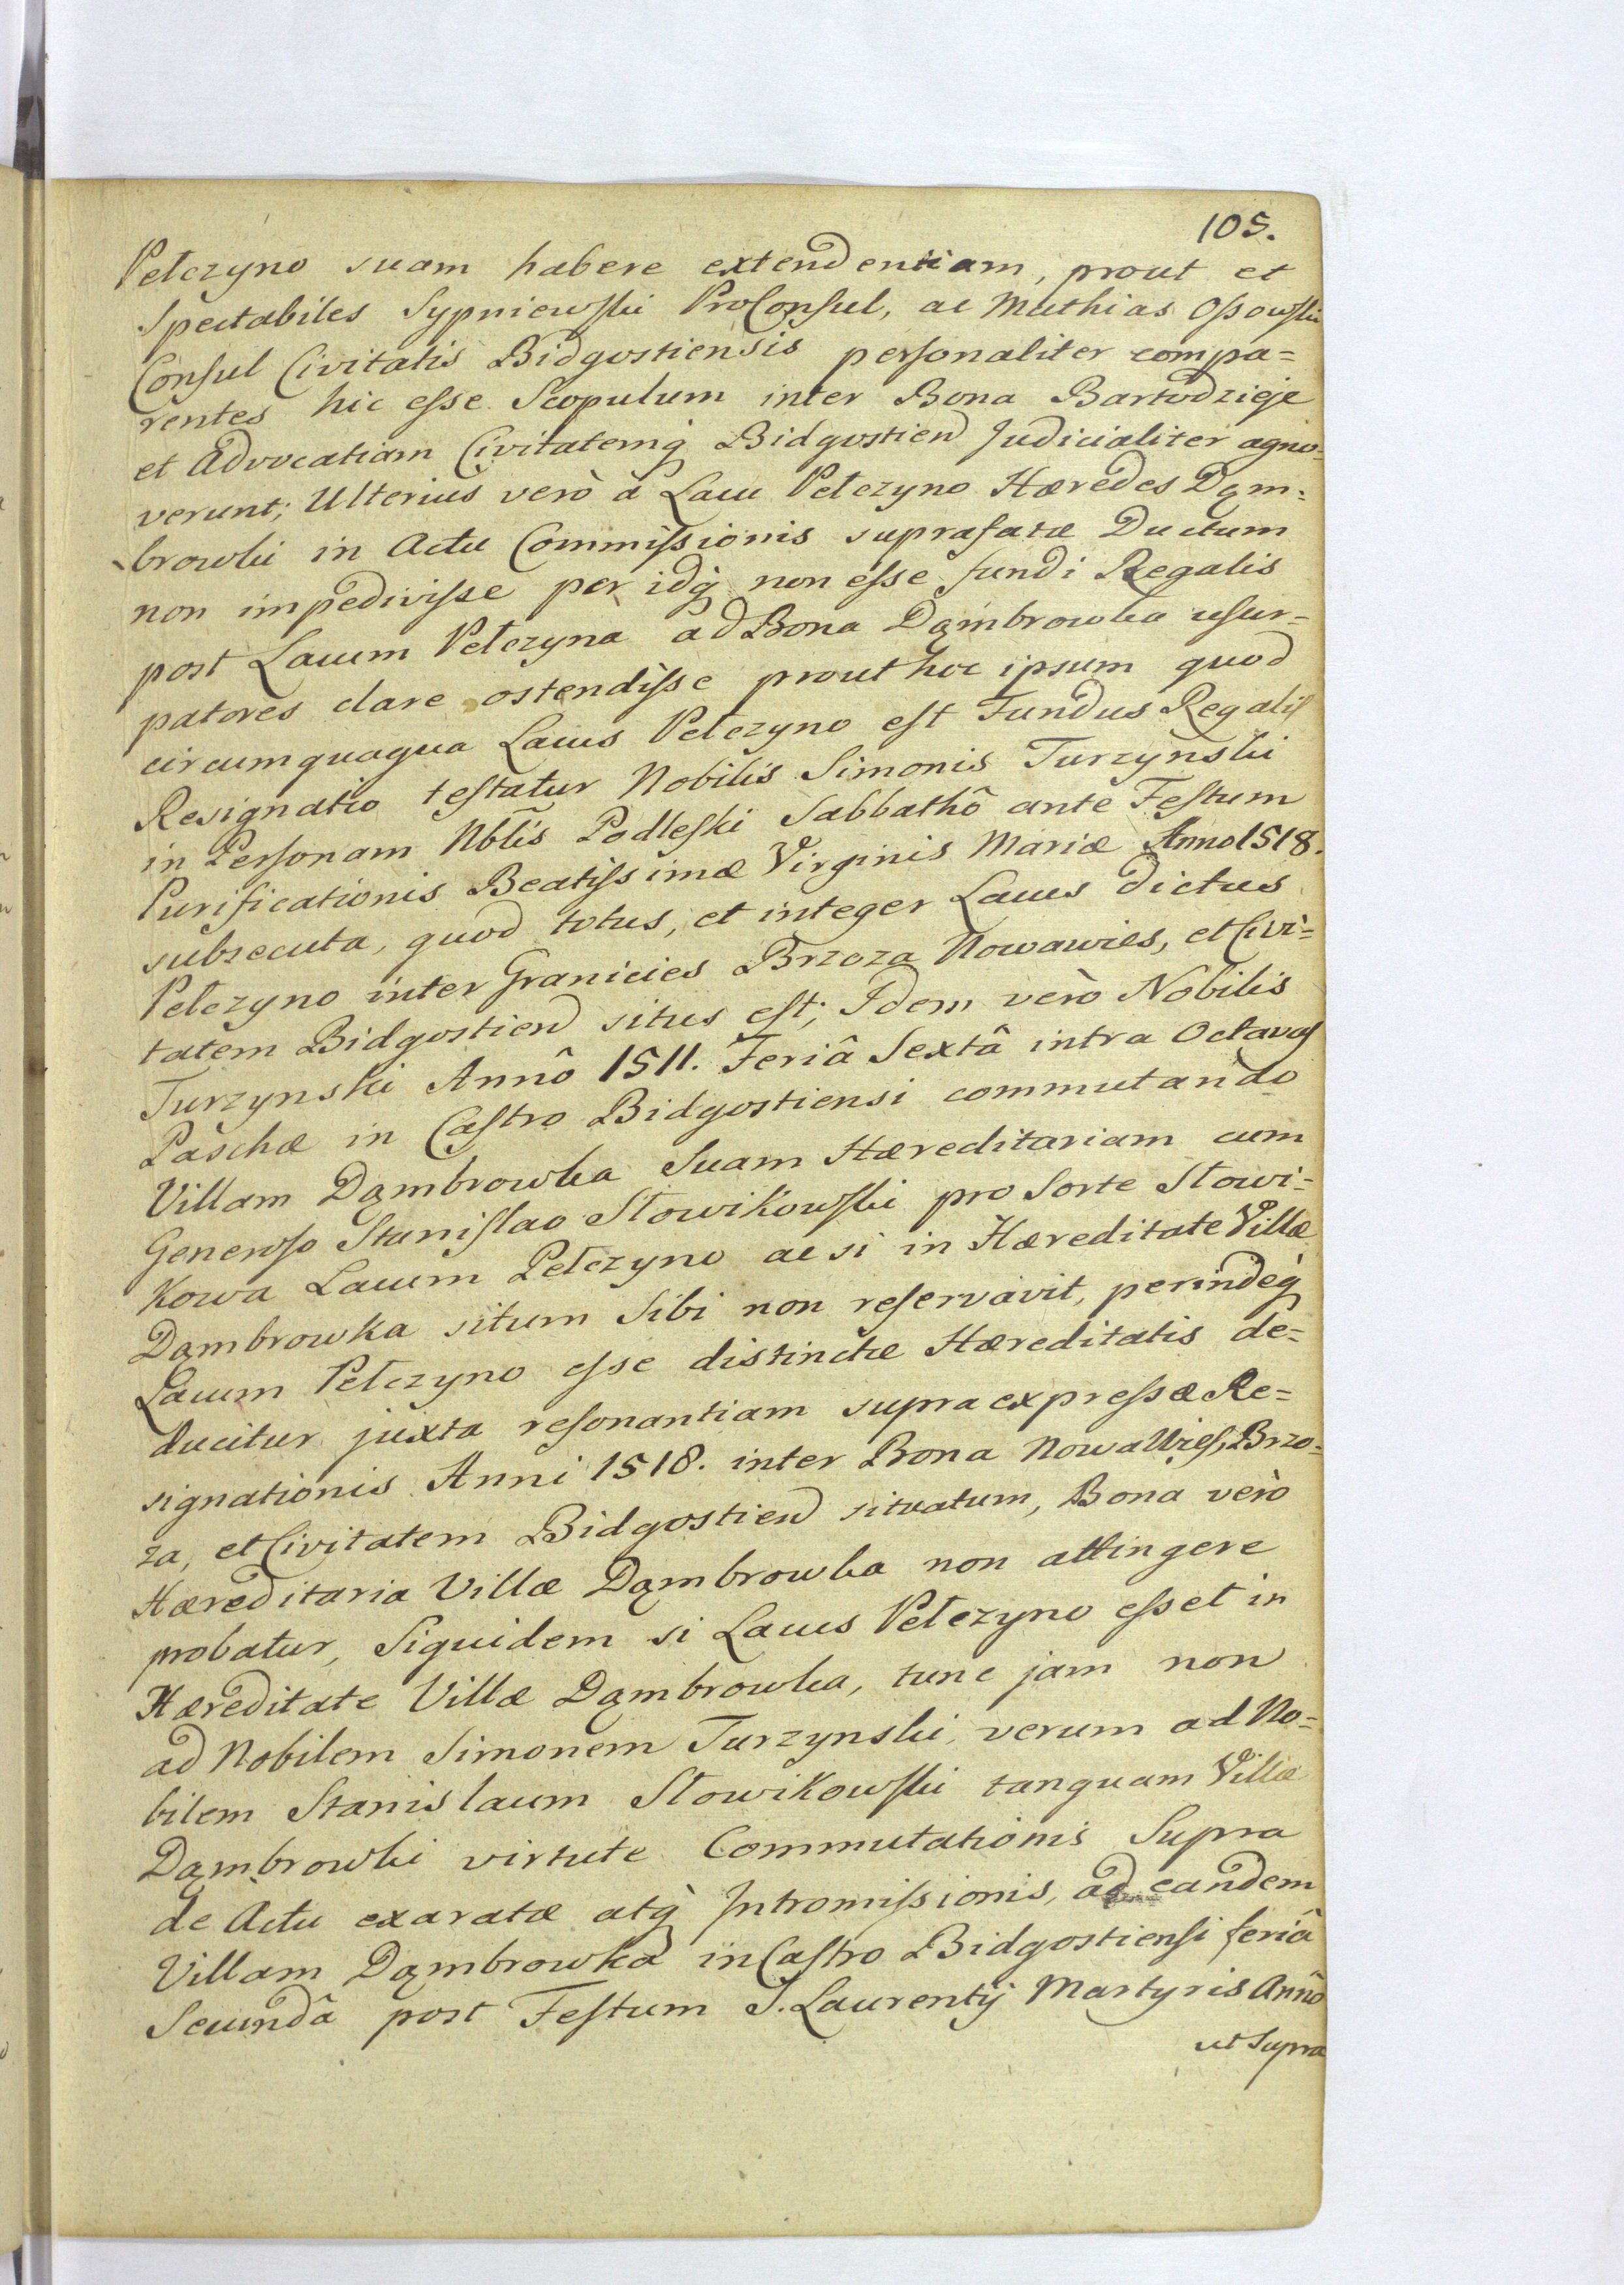 105.
Pełczyno suam habere extendentiam, prout et
Spectabiles Sypniewski ProConsul, ac Mathias Ossowski
Consul Civitatis Bidgostiensis personaliter compa=
rentes hic esse Scopulum inter Bona Bartodzieje
et Advocatiam Civitatemq́ Bidgostien Judicialiter agno=
verunt; Ulterius verò à Lacu Pełczyno Hæredes Dąm=
browki in Actu Commissionis suprafatæ Ductum
non impedivisse per idq́ non esse fundi Regalis
post Lacum Pełczyna ad Bona Dąmbrowka usur=
patores clare ostendisse prout hoc ipsum quod
circumquaqua Lacus Pełczyno est Fundus Regalis
Resignatio testatur Nobilis Simonis Turzynski
in Personam Nblis Podleski Sabbathô ante Festum
Purificationis Beatissimæ Virginis Mariæ Anno 1518.
subsecuta, quod totus, et integer Lacus dictus
Pełczyno inter Granicies Brzoza Nowawies, et Civi=
tatem Bidgostien situs est; Idem verò Nobilis
Turzynski Annô 1511. Feriâ Sextâ intra Octavas
Paschæ in Castro Bidgostiensi commutando
Villam Dąmbrowka Suam Hæreditariam cum
Generoso Stanislao Słowikowski pro Sorte Słowi=
kowa Lacum Pełczyno ac si in Hæreditate Villæ
Dąmbrowka situm Sibi non reservavit, perindeq́
Lacum Pełczyno esse distinctæ Hæreditatis de=
ducitur juxta resonantiam supra expressæ Re=
signationis Anni 1518. inter Bona NowaWies, Brzo=
za, et Civitatem Bidgostien situatum, Bona verò
Hæreditaria Villæ Dąmbrowka non attingere
probatur, Siquidem si Lacus Pełczyno esset in
Hæreditate Villæ Dąmbrowka, tunc jam non
ad Nobilem Simonem Turzynski, verum ad No=
bilem Stanislaum Słowikowski tanquam Villæ
Dąmbrowki virtute Commutationis Supra
de Actu exaratæ atq́ Intromissionis, ad eandem
Villam Dąmbrowka in Castro Bidgostiensi feriâ
Secundâ post Festum S. Laurentij Martyris Annô
ut Supra